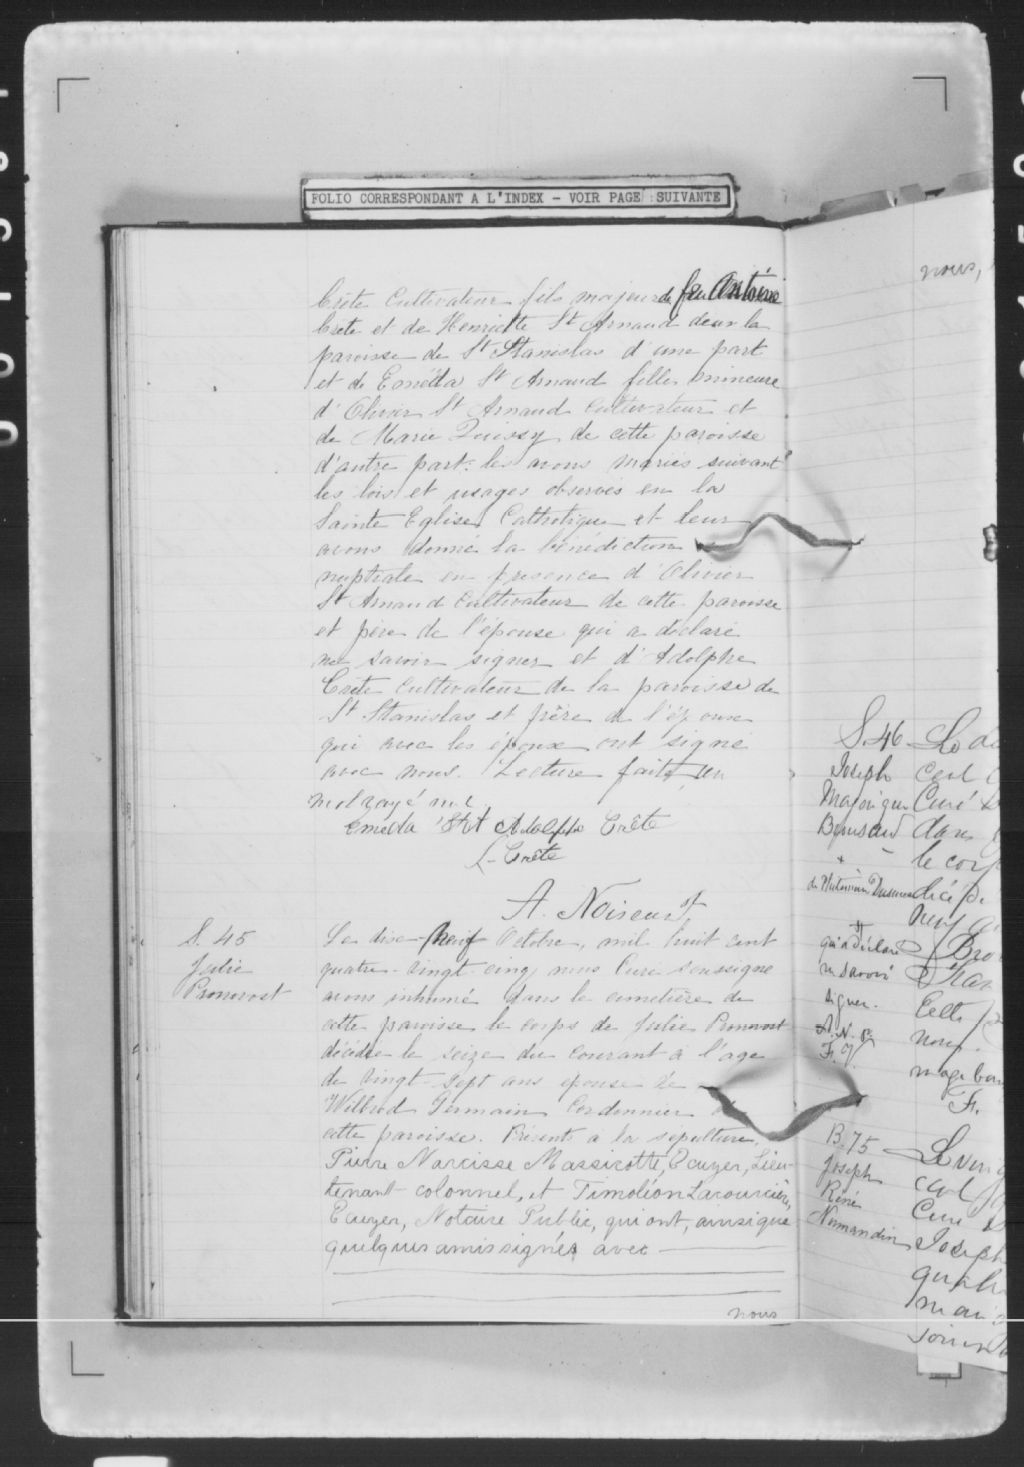 FOLIO CORRESPONDANT A L'INDEX - VOIR PAGE SUIVANTE
Crête Cultivateur fils majeur de feu Antoine
Crete et de Henriette St Arnaud deux la
paroisse de St Stanislas d'une part
et de Emélda St Arnaud fille mineure
d'Olivier St Arnaud Cultivateur et
de Marie de cette paroisse
d'autre part. les avons mariés suivant
les lois et usages observés en la
Sainte Eglise Catholique et leur
avons donné la bénédiction
nuptiale en presence d'Olivier
St Arnaud Cultivateur de cette paroisse
et père de l'épouse qui a déclaré
ne savoir signer et d'Adolphe
Crête Cultivateur de la paroisse de
St Stanislas et frère de l'époux
qui avec les époux ont signé
avec nous. Lecture faite, un
mot rayé nul
Emelda Adolphe Crête
Crête
A. Noiseux
S. 45
Julie
Pronovost
Le dix-neuf Octobre, mil huit cent
quatre-vingt-cinq nous Curé soussigné
avons inhumé dans le cimetière de
cette paroisse le corps de Julie Pronovost
décédée le seize du courant à l'age
de vingt-sept ans epouse de
Wilbrod Germain Cordonnier de
cette paroisse. Présents à la sépulture
Pierre Narcisse Massicotte, Ecuyer, Lieu-
tenant-colonnel, et Timoléon Lacourcière,
Ecuyer, Notaire Public, qui ont, ainsi que
quelques amis signés avec
nous
nous,
S. 46
Joseph
Majorique
+
qui a déclaré
ne savoir
signer.
A. N. P
Le
cent
Curé
dans
le corp
neuf
Cette
nous.
F.
B. 75
Joseph
René
Normandin
Le
cent
Curé
Joseph